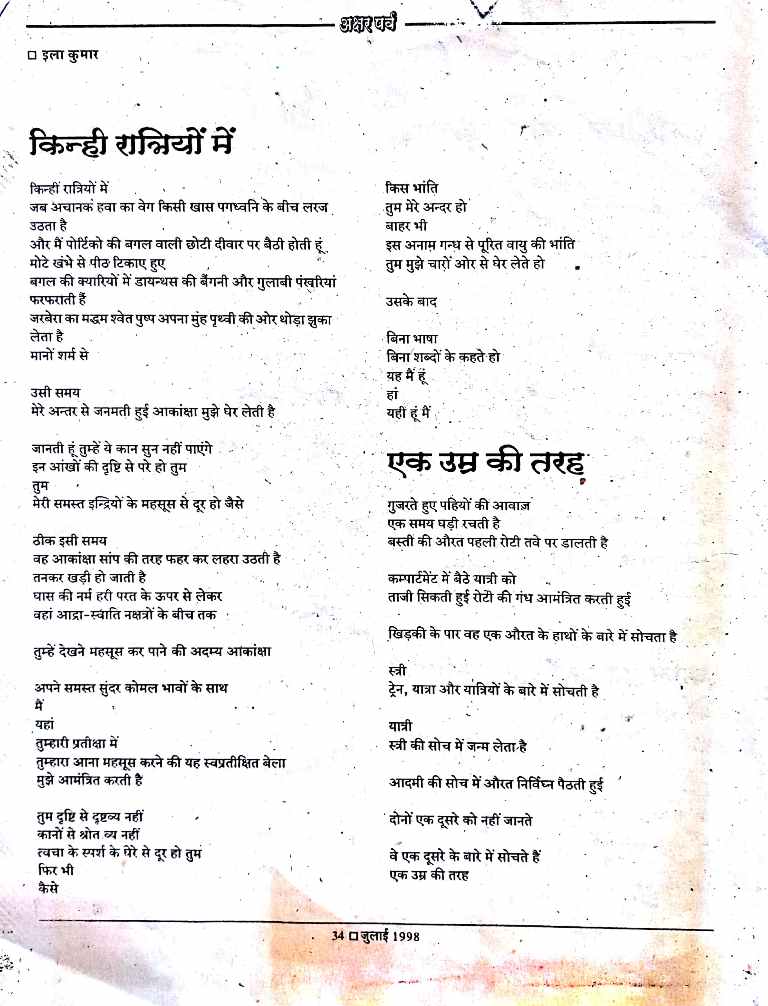 अक्षर पर्व
□ इला कुमार
किन्ही रात्रियों में
किन्हीं रात्रियों में
जब अचानक हवा का वेग किसी खास पगध्वनि के बीच लरज
उठता है
और मैं पोर्टिको की बगल वाली छोटी दीवार पर बैठी होती हूं
मोटे खंभे से पीठ टिकाए हुए
बगल की क्यारियों में डायन्थस की बैंगनी और गुलाबी पंखुरियां
फरफराती हैं
जरबेरा का मद्धम श्वेत पुष्प अपना मुंह पृथ्वी की ओर थोड़ा झुका
लेता है
मानों शर्म से
उसी समय
मेरे अन्तर से जनमती हुई आकांक्षा मुझे घेर लेती है
जानती हूं तुम्हें ये कान सुन नहीं पाएंगे
इन आंखों की दृष्टि से परे हो तुम
तुम
मेरी समस्त इन्द्रियों के महसूस से दूर हो जैसे
ठीक इसी समय
वह आकांक्षा सांप की तरह फहर कर लहरा उठती है
तनकर खड़ी हो जाती है
घास की नर्म हरी परत के ऊपर से लेकर
वहां आद्रा-स्वाति नक्षत्रों के बीच तक
तुम्हें देखने महसूस कर पाने की अदम्य आकांक्षा
अपने समस्त सुंदर कोमल भावों के साथ
मैं
यहां
तुम्हारी प्रतीक्षा में
तुम्हारा आना महसूस करने की यह स्वप्रतीक्षित बेला
मुझे आमंत्रित करती है
तुम दृष्टि से दृष्टव्य नहीं
कानों से श्रोत व्य नहीं
त्वचा के स्पर्श के घेरे से दूर हो तुम
फिर भी
कैसे
किस भांति
तुम मेरे अन्दर हो
बाहर भी
इस अनाम गन्ध से पूरित वायु की भांति
तुम मुझे चारों ओर से घेर लेते हो
उसके बाद
बिना भाषा
बिना शब्दों के कहते हो
यह मैं हूं
हां
यहीं हूं मैं
एक उम्र की तरह
गुजरते हुए पहियों की आवाज़
एक समय घड़ी रचती है
बस्ती की औरत पहली रोटी तवे पर डालती है
कम्पार्टमेंट में बैठे यात्री को
ताजी सिकती हुई रोटी की गंध आमंत्रित करती हुई
खिड़की के पार वह एक औरत के हाथों के बारे में सोचता है
स्त्री
ट्रेन, यात्रा और यात्रियों के बारे में सोचती है
यात्री
स्त्री की सोच में जन्म लेता है
आदमी की सोच में औरत निर्विघ्न पैठती हुई
दोनों एक दूसरे को नहीं जानते
वे एक दूसरे के बारे में सोचते हैं
एक उम्र की तरह
34 □ जुलाई 1998